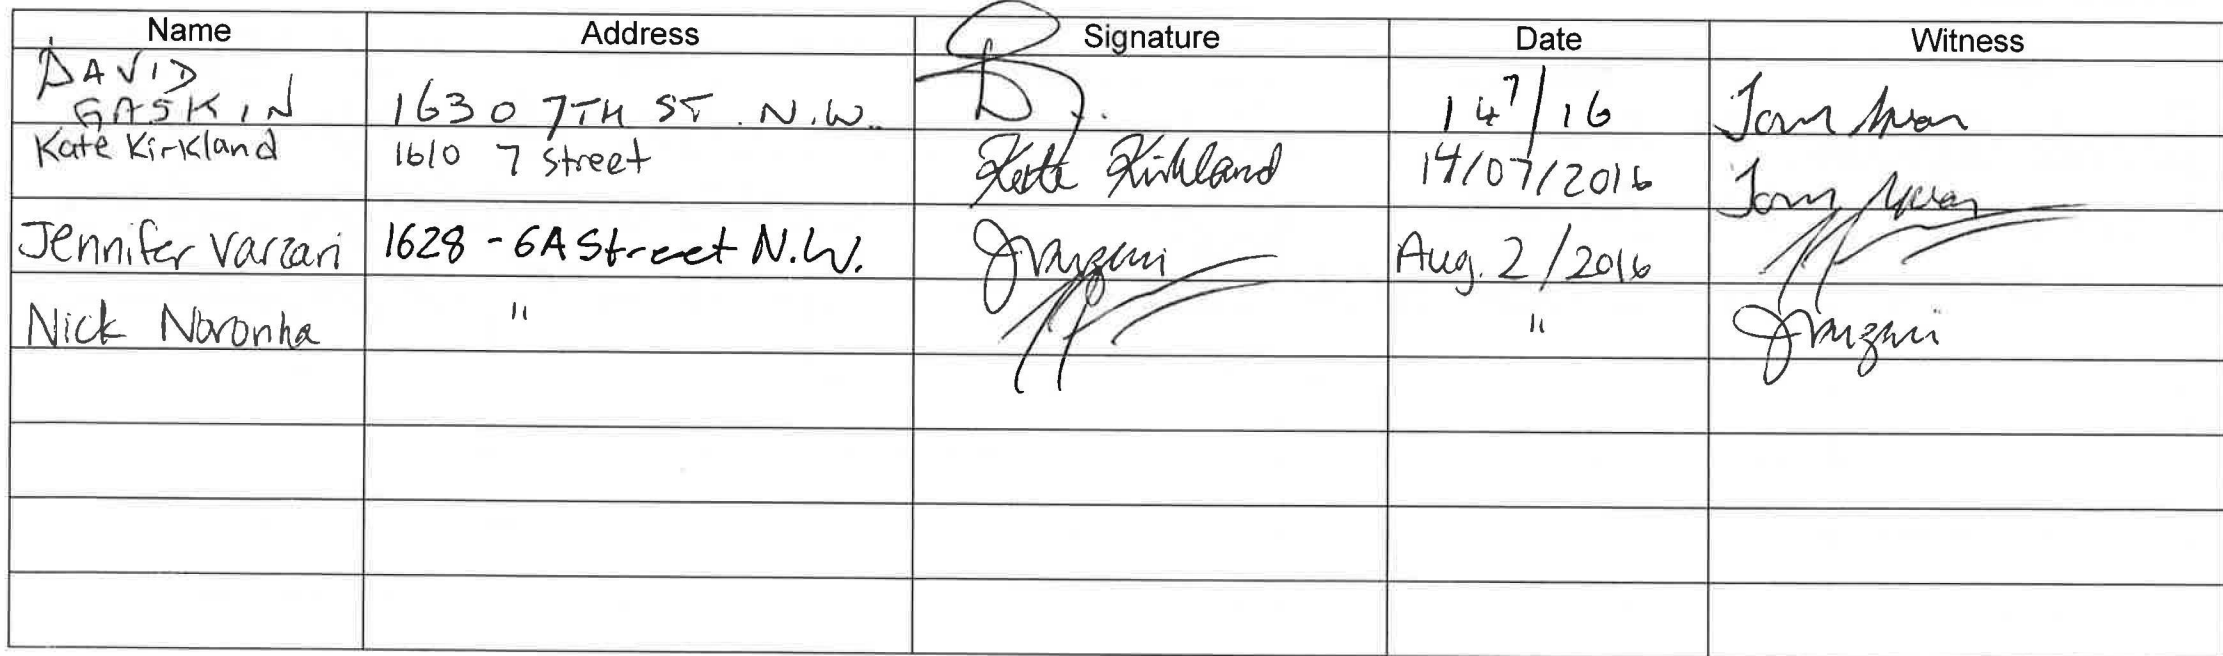 Name Address Signature Date Witness
DAVID
GASKIN 1630 7TH ST. N.W. 14 7/16
Kate Kirkland 1610 7 street Kate Kirkland 14/07/2016
Jennifer Varzari 1628 - 6A Street N.W. JVarzari Aug. 2/2016
Nick Noronha " " JVarzari